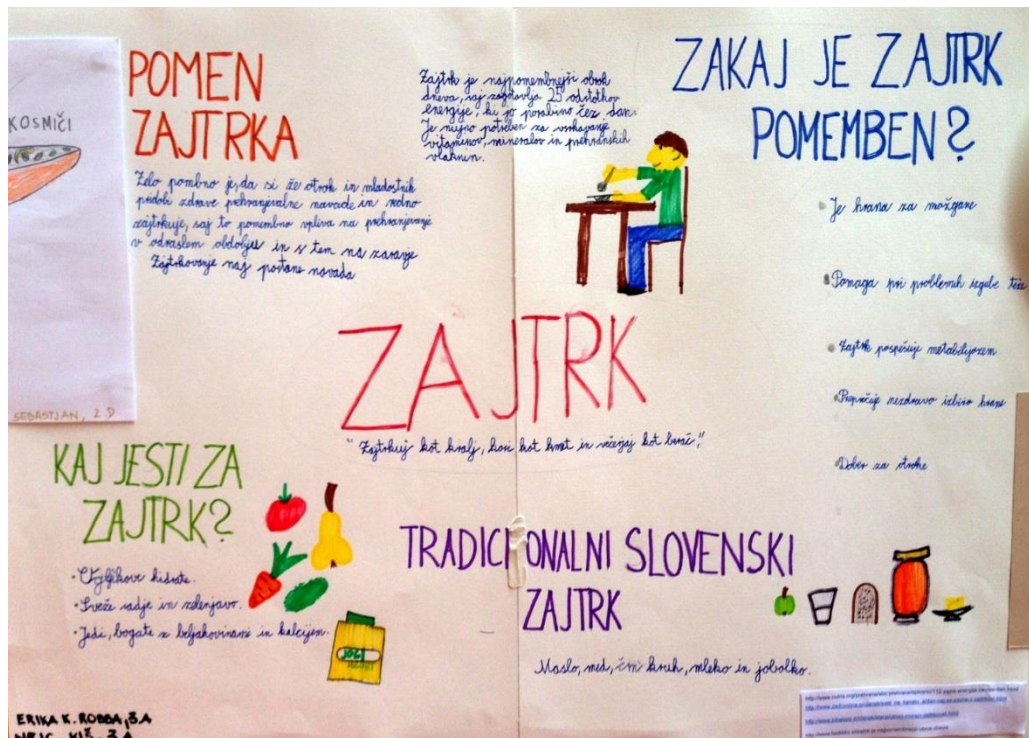 KOSMIČI
SEBASTJAN, 2.D
POMEN
ZAJTRKA
Zelo pombno je, da si že otrok in mladostnik
pridobi zdrave prehranjevalne navade in redno
zajtrkuje, saj to pomembno vpliva na prehranjevanje
v odraslem obdobju in s tem na zdravje
Zajtrkovanje naj postane navada
Zajtrk je najpomembnejši obrok
dneva, saj zagotavlja 25 odstotkov
energije, ki jo porabimo čez dan.
Je nujno potreben za vsrkavanje
vitaminov, mineralov in prehranskih
vlaknin.
ZAKAJ JE ZAJTRK
POMEMBEN?
Je hrana za možgane
Pomaga pri problemih izgube teže
Zajtrk pospešuje metabolijozem
Preprečuje nezdravo izbiro hrane
Dober za otroke
ZAJTRK
"Zajtrkuj kot kralj, kosi kot kmet in večerjaj kot berač,"
KAJ JESTI ZA
ZAJTRK?
• Ogljikove hidrate.
• Sveže sadje in zelenjavo.
• Jedi, bogate z beljakovinami in kalcijem.
TRADICIONALNI SLOVENSKI
ZAJTRK
Maslo, med, črn kruh, mleko in jobolko.
ERIKA K. ROBBA, 3.A